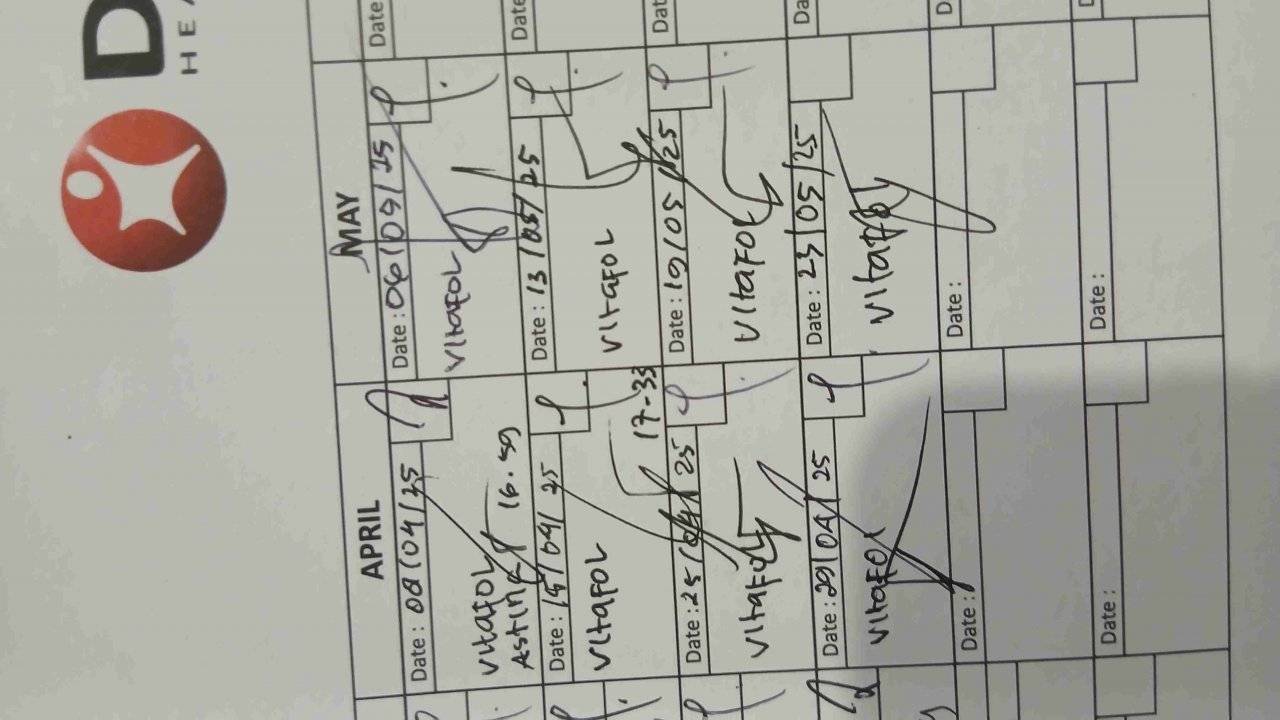 D
HEA
APRIL
Date : 08/04/25
VItaFOL
Astina
16.59
Date : 15/04/25
VItaFOL
17-33
Date : 25/04/25
VItaFOL
Date : 29/04/25
VItaFOl
Date :
Date :
MAY
Date : 06/09/25
VItaFOL
Date : 13/05/25
VItaFOL
Date : 19/05/25
VItaFOL
Date : 23/05/25
VItaFOL
Date :
Date :
Date
Date
Date
Da
D
D